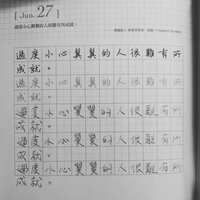 [ Jun. 27 ]
過度小心翼翼的人很難有所成就。
過度小心翼翼的人很難有所
成就。
過度小心翼翼的人很難有所
成就。
過度小心翼翼的人很難有所
成就。
過度小心翼翼的人很難有所
成就。
過度小心翼翼的人很難有所
成就。